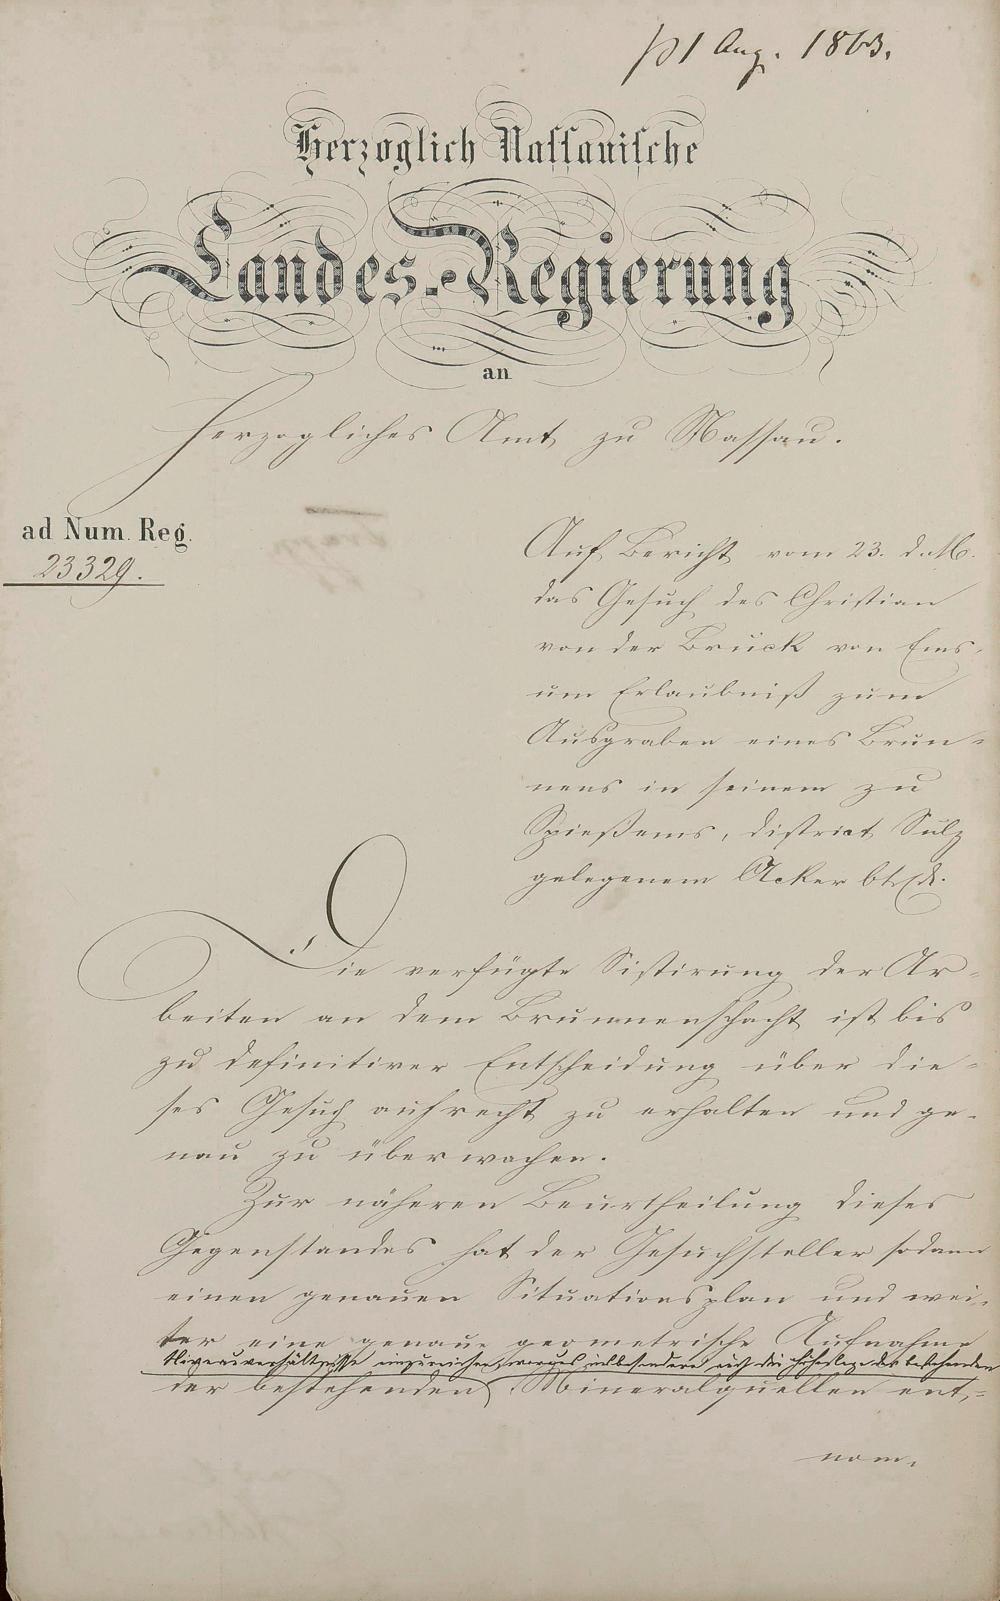 1 Aug. 1863.
Herzoglich Nassauische
Landes-Regierung
an
Herzogliches Amt zu Nassau.
ad Num. Reg.
23329.
Auf Bericht vom 23. d. M.
das Gesuch des Christian
von der Brück von Ems,
um Erlaubniß zum
Ausgraben eines Brun-
nens in seinem zu
Spießems, District Sulz
gelegenem Acker btrfd.
Die verfügte Sistirung der Ar-
beiten an dem Brunnenschacht ist bis
zu definitiver Entscheidung über die-
ses Gesuch aufrecht zu erhalten und ge-
nau zu überwachen.
Zur näheren Beurtheilung dieses
Gegenstandes hat der Gesuchsteller sodann
einen genauen Situationsplan und wei-
ter eine genaue geometrische Aufnahme
Niveauverhältnisse einzureichen, woraus insbesondere auch die Höhenlage der bestehenden
der bestehenden Mineralquellen ent-
nom.